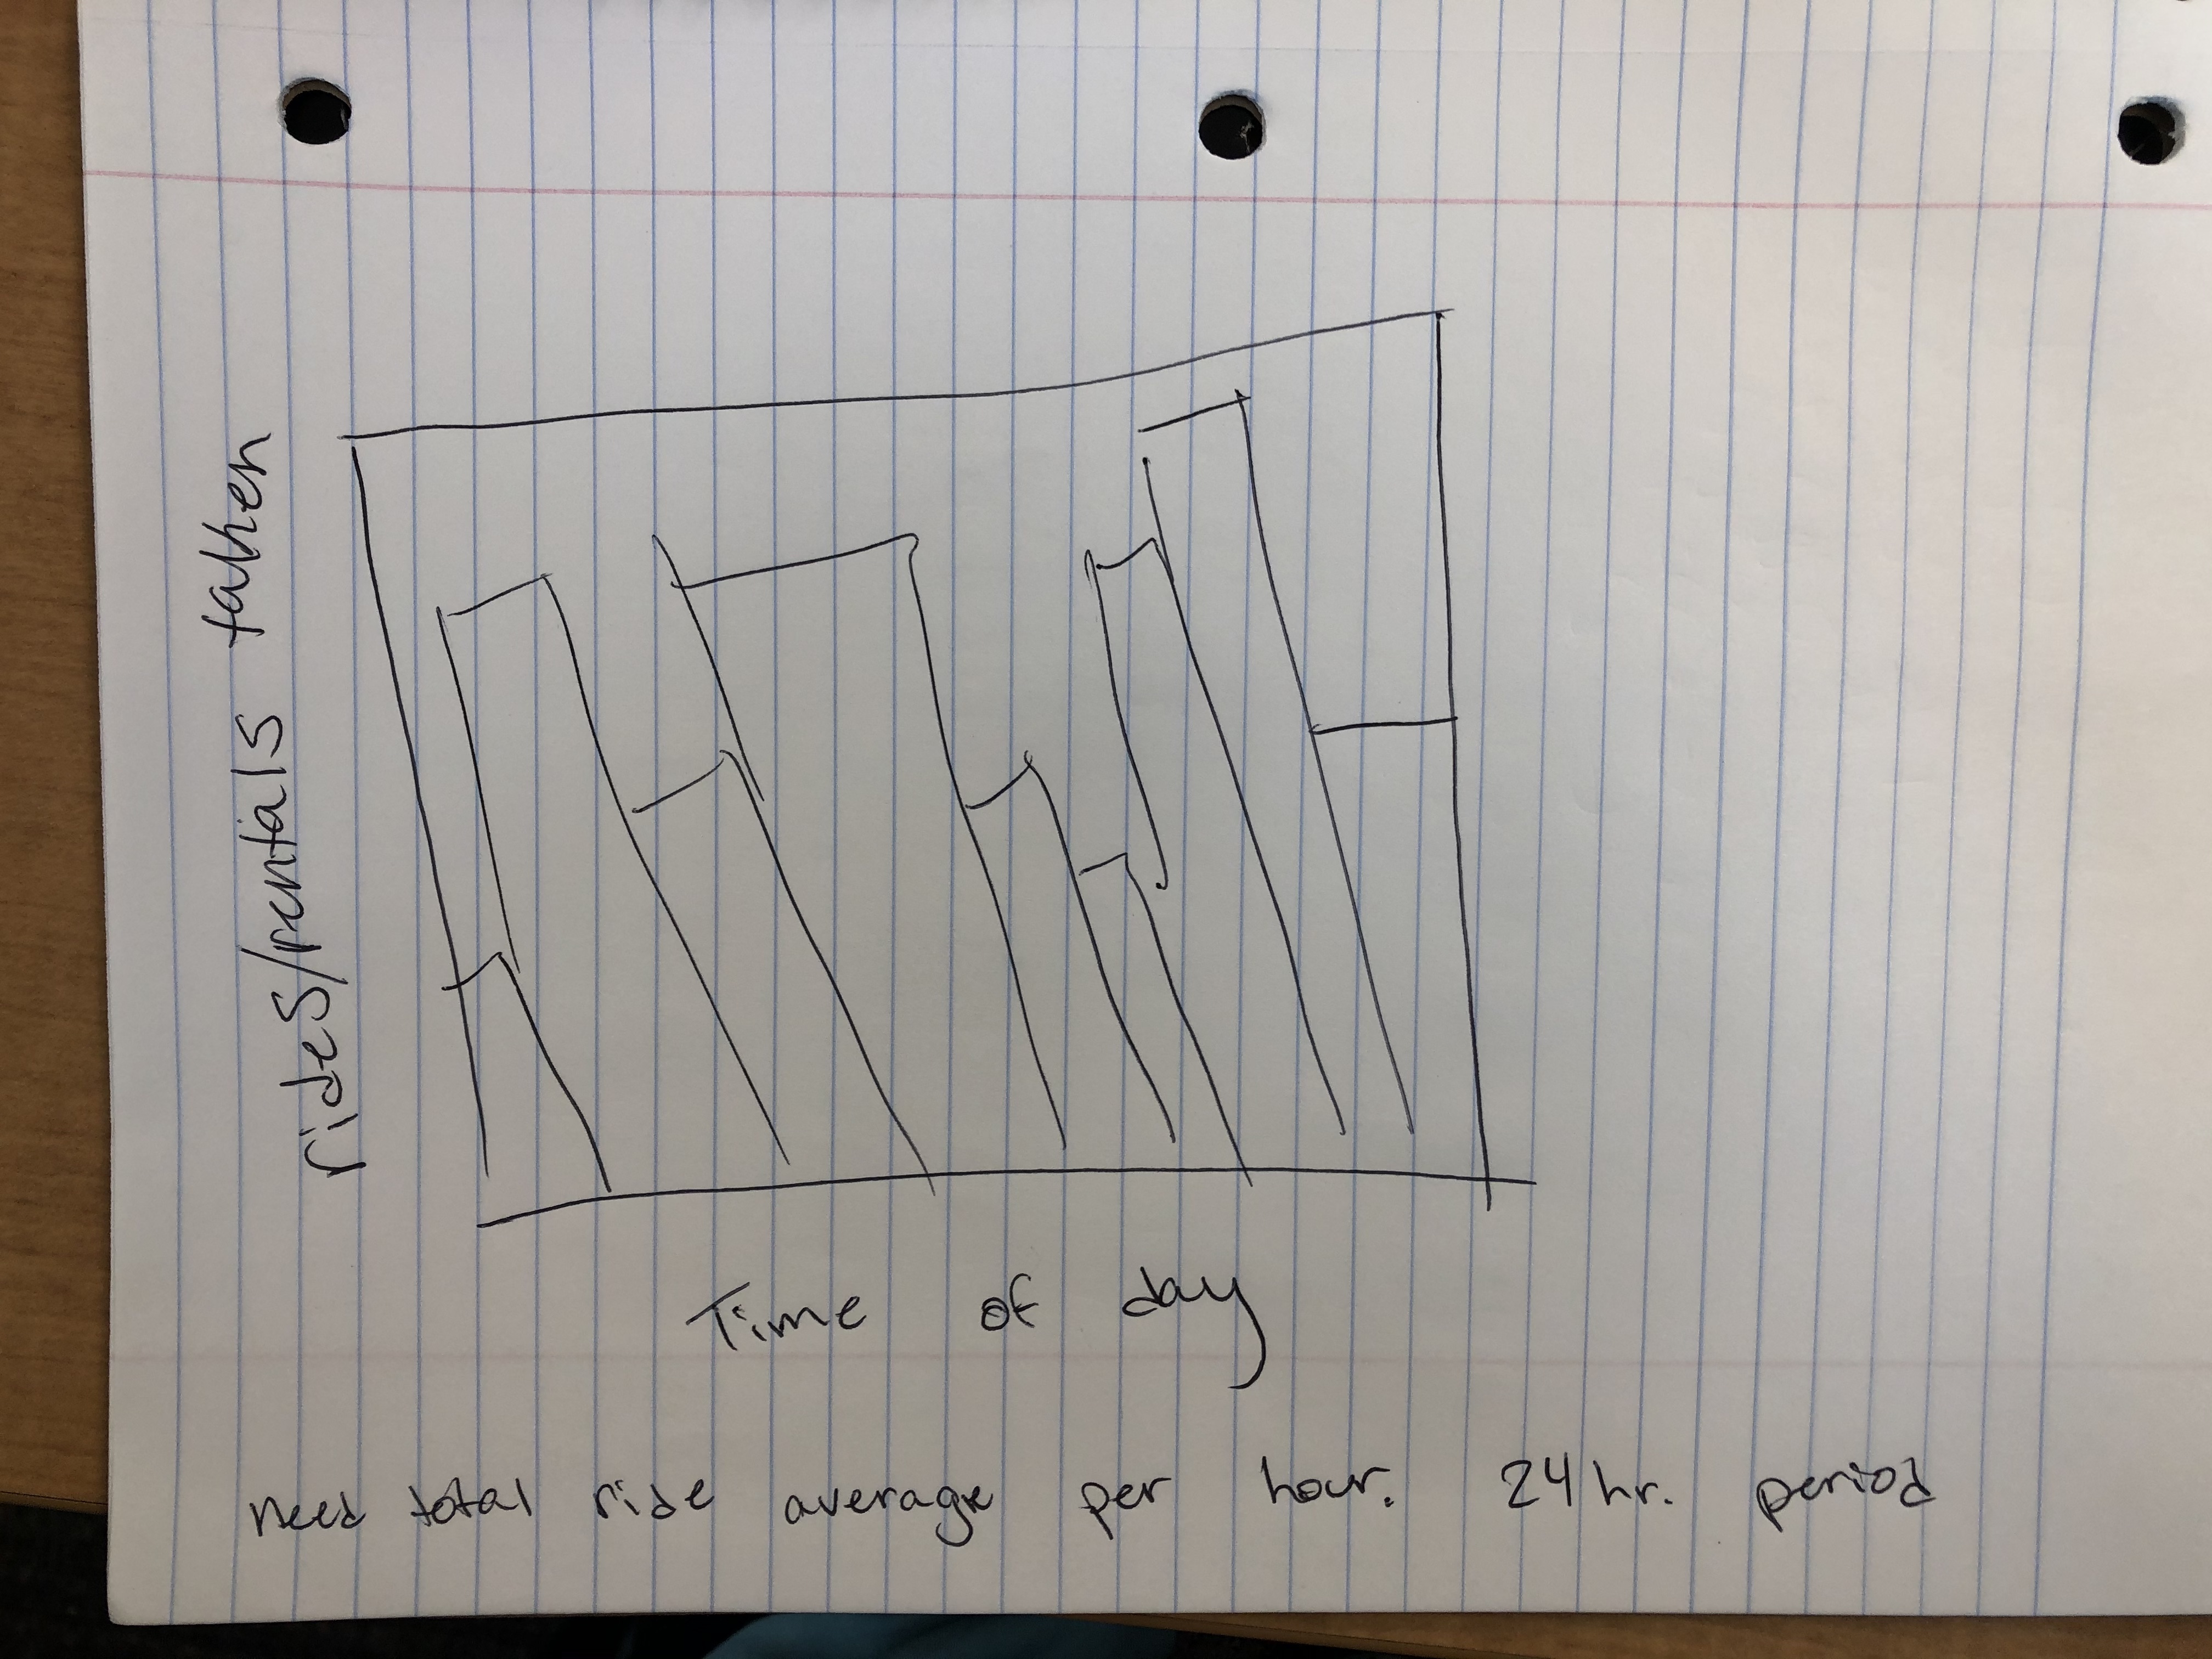 rides/rentals taken
Time of day
need total ride average per hour. 24 hr. period